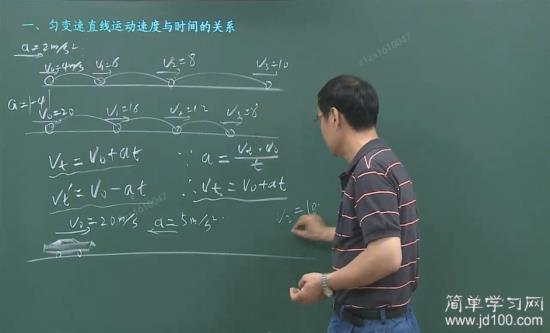 一、匀变速直线运动速度与时间的关系
a=2m/s²
V₀=4m/s V₁=6 V₂=8 V₃=10
a=-4
V₀=20 V₁=16 V₂=12 V₃=8
Vt=V₀+at ∵a=(Vt-V₀)/t
Vt'=V₀-at ∴Vt=V₀+at
V₀=20m/s a=5m/s² V₂=10
z1zx1610047
z1zx1610047
简单学习网
www.jd100.com